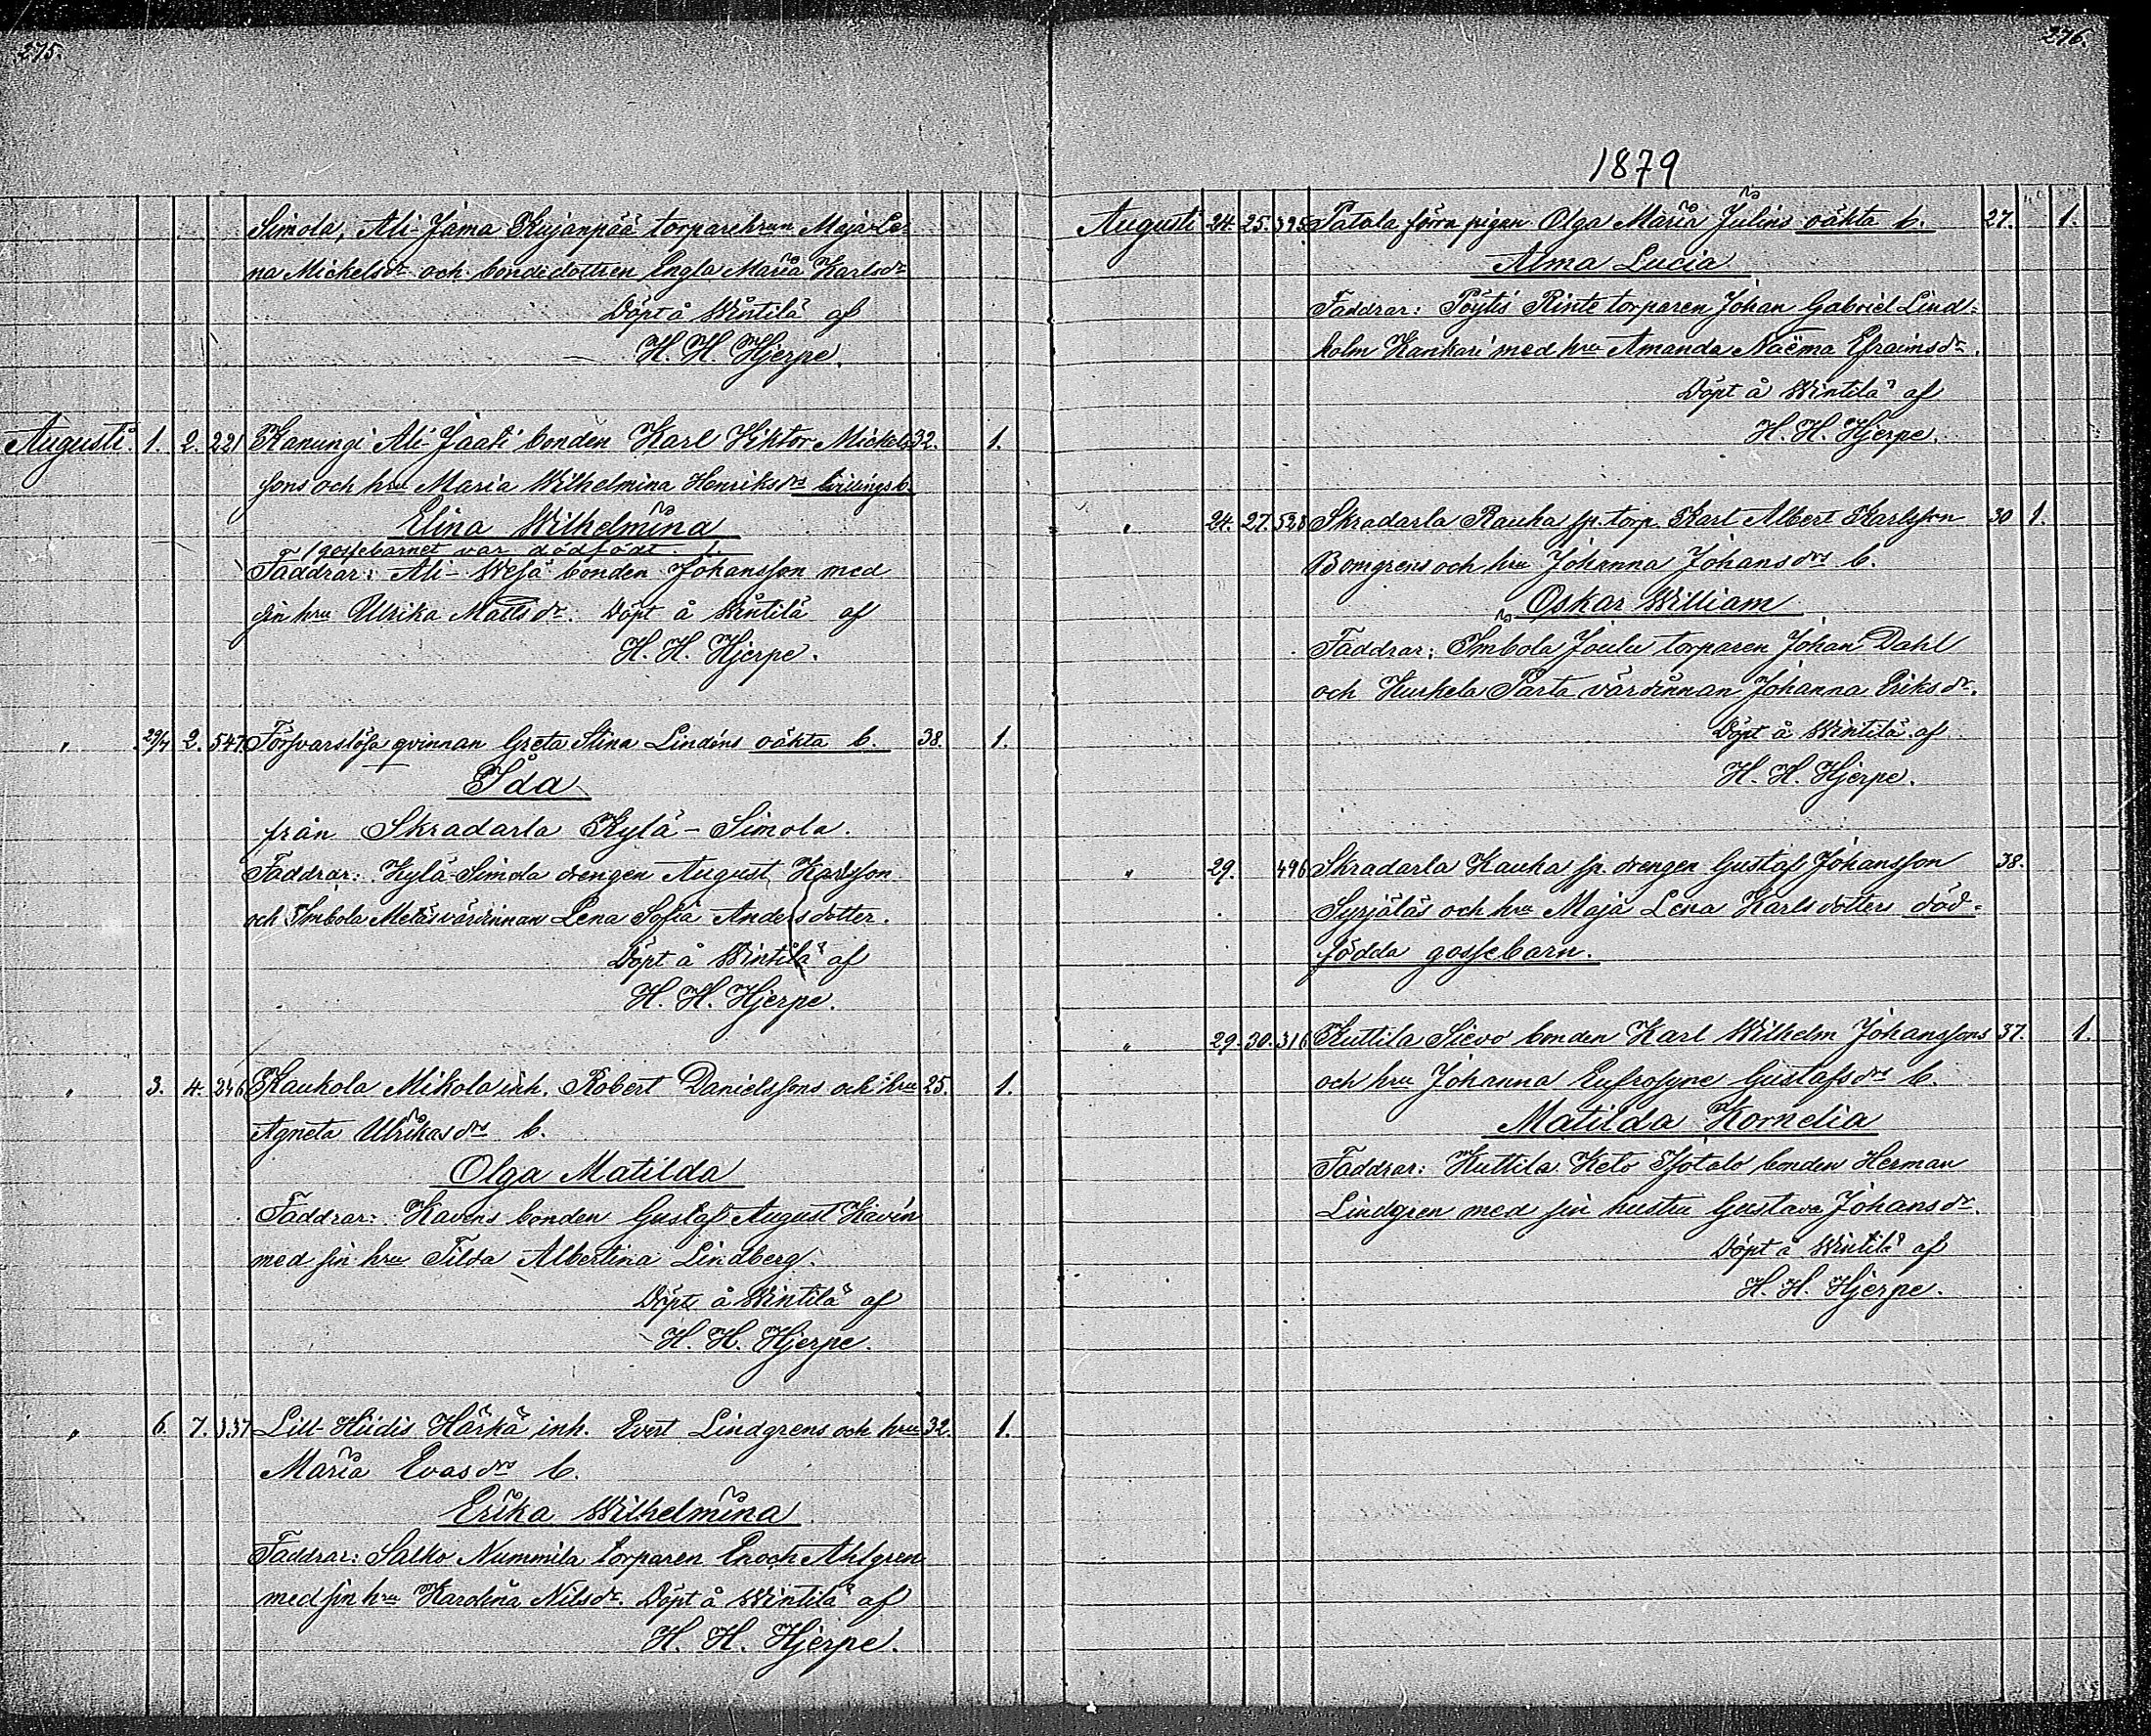 275.
Simola, Ali-Jama Kujanpää torparehrun Maja Le-
na Mickelsdr och bondedottren Engla Maria Karlsdr
Döpt å Wintilä af
H. H. Hjerpe.
Augusti. 1. 2. 221 Kanungi Ali-Jaati bonden Karl Viktor Mickels- 32. 1.
sons och hru Maria Wilhelmina Henriksdrs tvillingsb.
Elina Wilhelmina
/gossebarnet var dödfödt./.
Faddrar: Ali-Wesa bonden Johansson med
sin hru Ulrika Mattsdr. Döpt å Wintilä af
H. H. Hjerpe.
" 29/7 2. 547. Försvarslösa qvinnan Greta Stina Lindéns oäkta b. 38. 1.
Ida
från Skradarla Kylä-Simola.
Faddrar: Kylä-Simola drengen August Karlsson
och Imbola värdinnan Lena Sofia Andersdotter.
Döpt å Wintilä af
H. H. Hjerpe.
" 3. 4. 246 Kaukola Mikola inh. Robert Danielssons och hru 25. 1.
Agneta Ulrikasdrs b.
Olga Matilda
Faddrar: Kavens bonden Gustaf August Kavén
med sin hru Tilda Albertina Lindberg.
Döpt å Wintilä af
H. H. Hjerpe.
" 6. 7. 337 Lill-Hiidis Härkä inh. Evert Lindgrens och hru 32. 1.
Maria Evasdrs b.
Erika Wilhelmina
Faddrar: Salko Nummila torparen Enoch Ahlgren
med sin hru Karolina Nilsdr. Döpt å Wintilä af
H. H. Hjerpe.
276.
1879
Augusti 24. 25. 395. Patala förra pigan Olga Maria Julins oäkta b. 27. " 1.
Alma Lucia
Faddrar: Pöytis Rinte torparen Johan Gabriel Lind-
holm Kankari med hru Amanda Naëma Efraimsdr.
Döpt å Wintilä af
H. H. Hjerpe.
" 24. 27. 528 Skradarla Rauha sp. torp. Karl Albert Karlsson 30 1.
Bomgrens och hru Johanna Johansdrs b.
Oskar William
Faddrar: Imbola Joulu torparen Johan Dahl
och Kurkela Parta värdinnan Johanna Eriksdr.
Döpt å Wintilä af
H. H. Hjerpe.
" 29. 496 Skradarla Kauha sp. drengen Gustaf Johansson 38.
Syrjäläs och hru Maja Lena Karlsdotters död-
födda gossebarn.
" 29. 30. 316 Kuttila Sievo bonden Karl Wilhelm Johanssons 37. 1.
och hru Johanna Eufrosyne Gustafsdrs b.
Matilda Kornelia
Faddrar: Kuttila Keto Isotalo bonden Herman
Lindgren med sin hustru Gustava Johansdr.
Döpt å Wintilä af
H. H. Hjerpe.